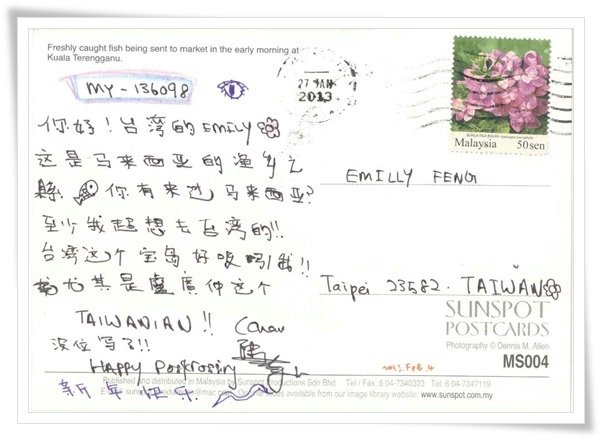 Freshly caught fish being sent to market in the early morning at
Kuala Terengganu.
MY-136098
27 JAN
2013
Malaysia 50 sen
你好！台湾的EMILY
这是马来西亚的渔乡之
县 你有来过马来西亚?
至少我超想去台湾的!!
台湾这个宝岛好吸吗/我!!
尤其是盧廣仲这个
TAIWANIAN !!
没位写了!!
HAPPY Postcrossing
新年快乐
EMILLY FENG
Taipei 23582. TAIWAN
SUNSPOT
POSTCARDS
Photography © Dennis M. Allen
MS004
2013.FEB.4
Published and distributed in Malaysia by Sunspot Productions Sdn Bhd Tel / Fax: 6 04-7340323 Tel: 6 04-7347119
available from our image library website: www.sunspot.com.my